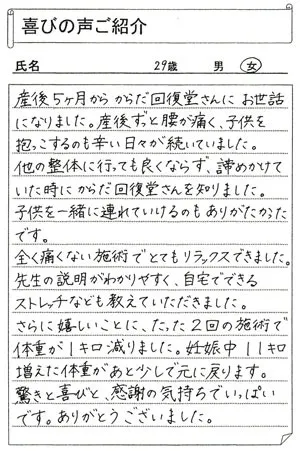 喜びの声ご紹介
氏名 29歳 男 女
産後5ヶ月から からだ回復堂さんに お世話
になりました。産後ずっと腰が痛く、子供を
抱っこするのも辛い日々が続いていました。
他の整体に行っても良くならず、諦めかけて
いた時に からだ回復堂さんを知りました。
子供を一緒に連れていけるのもありがたかった
です。
全く痛くない施術でとてもリラックスできました。
先生の説明がわかりやすく、自宅でできる
ストレッチなども教えていただきました。
さらに嬉しいことに、たった2回の施術で
体重が1キロ減りました。妊娠中 11キロ
増えた体重があと少しで元に戻ります。
驚きと喜びと、感謝の気持ちでいっぱい
です。ありがとうございました。